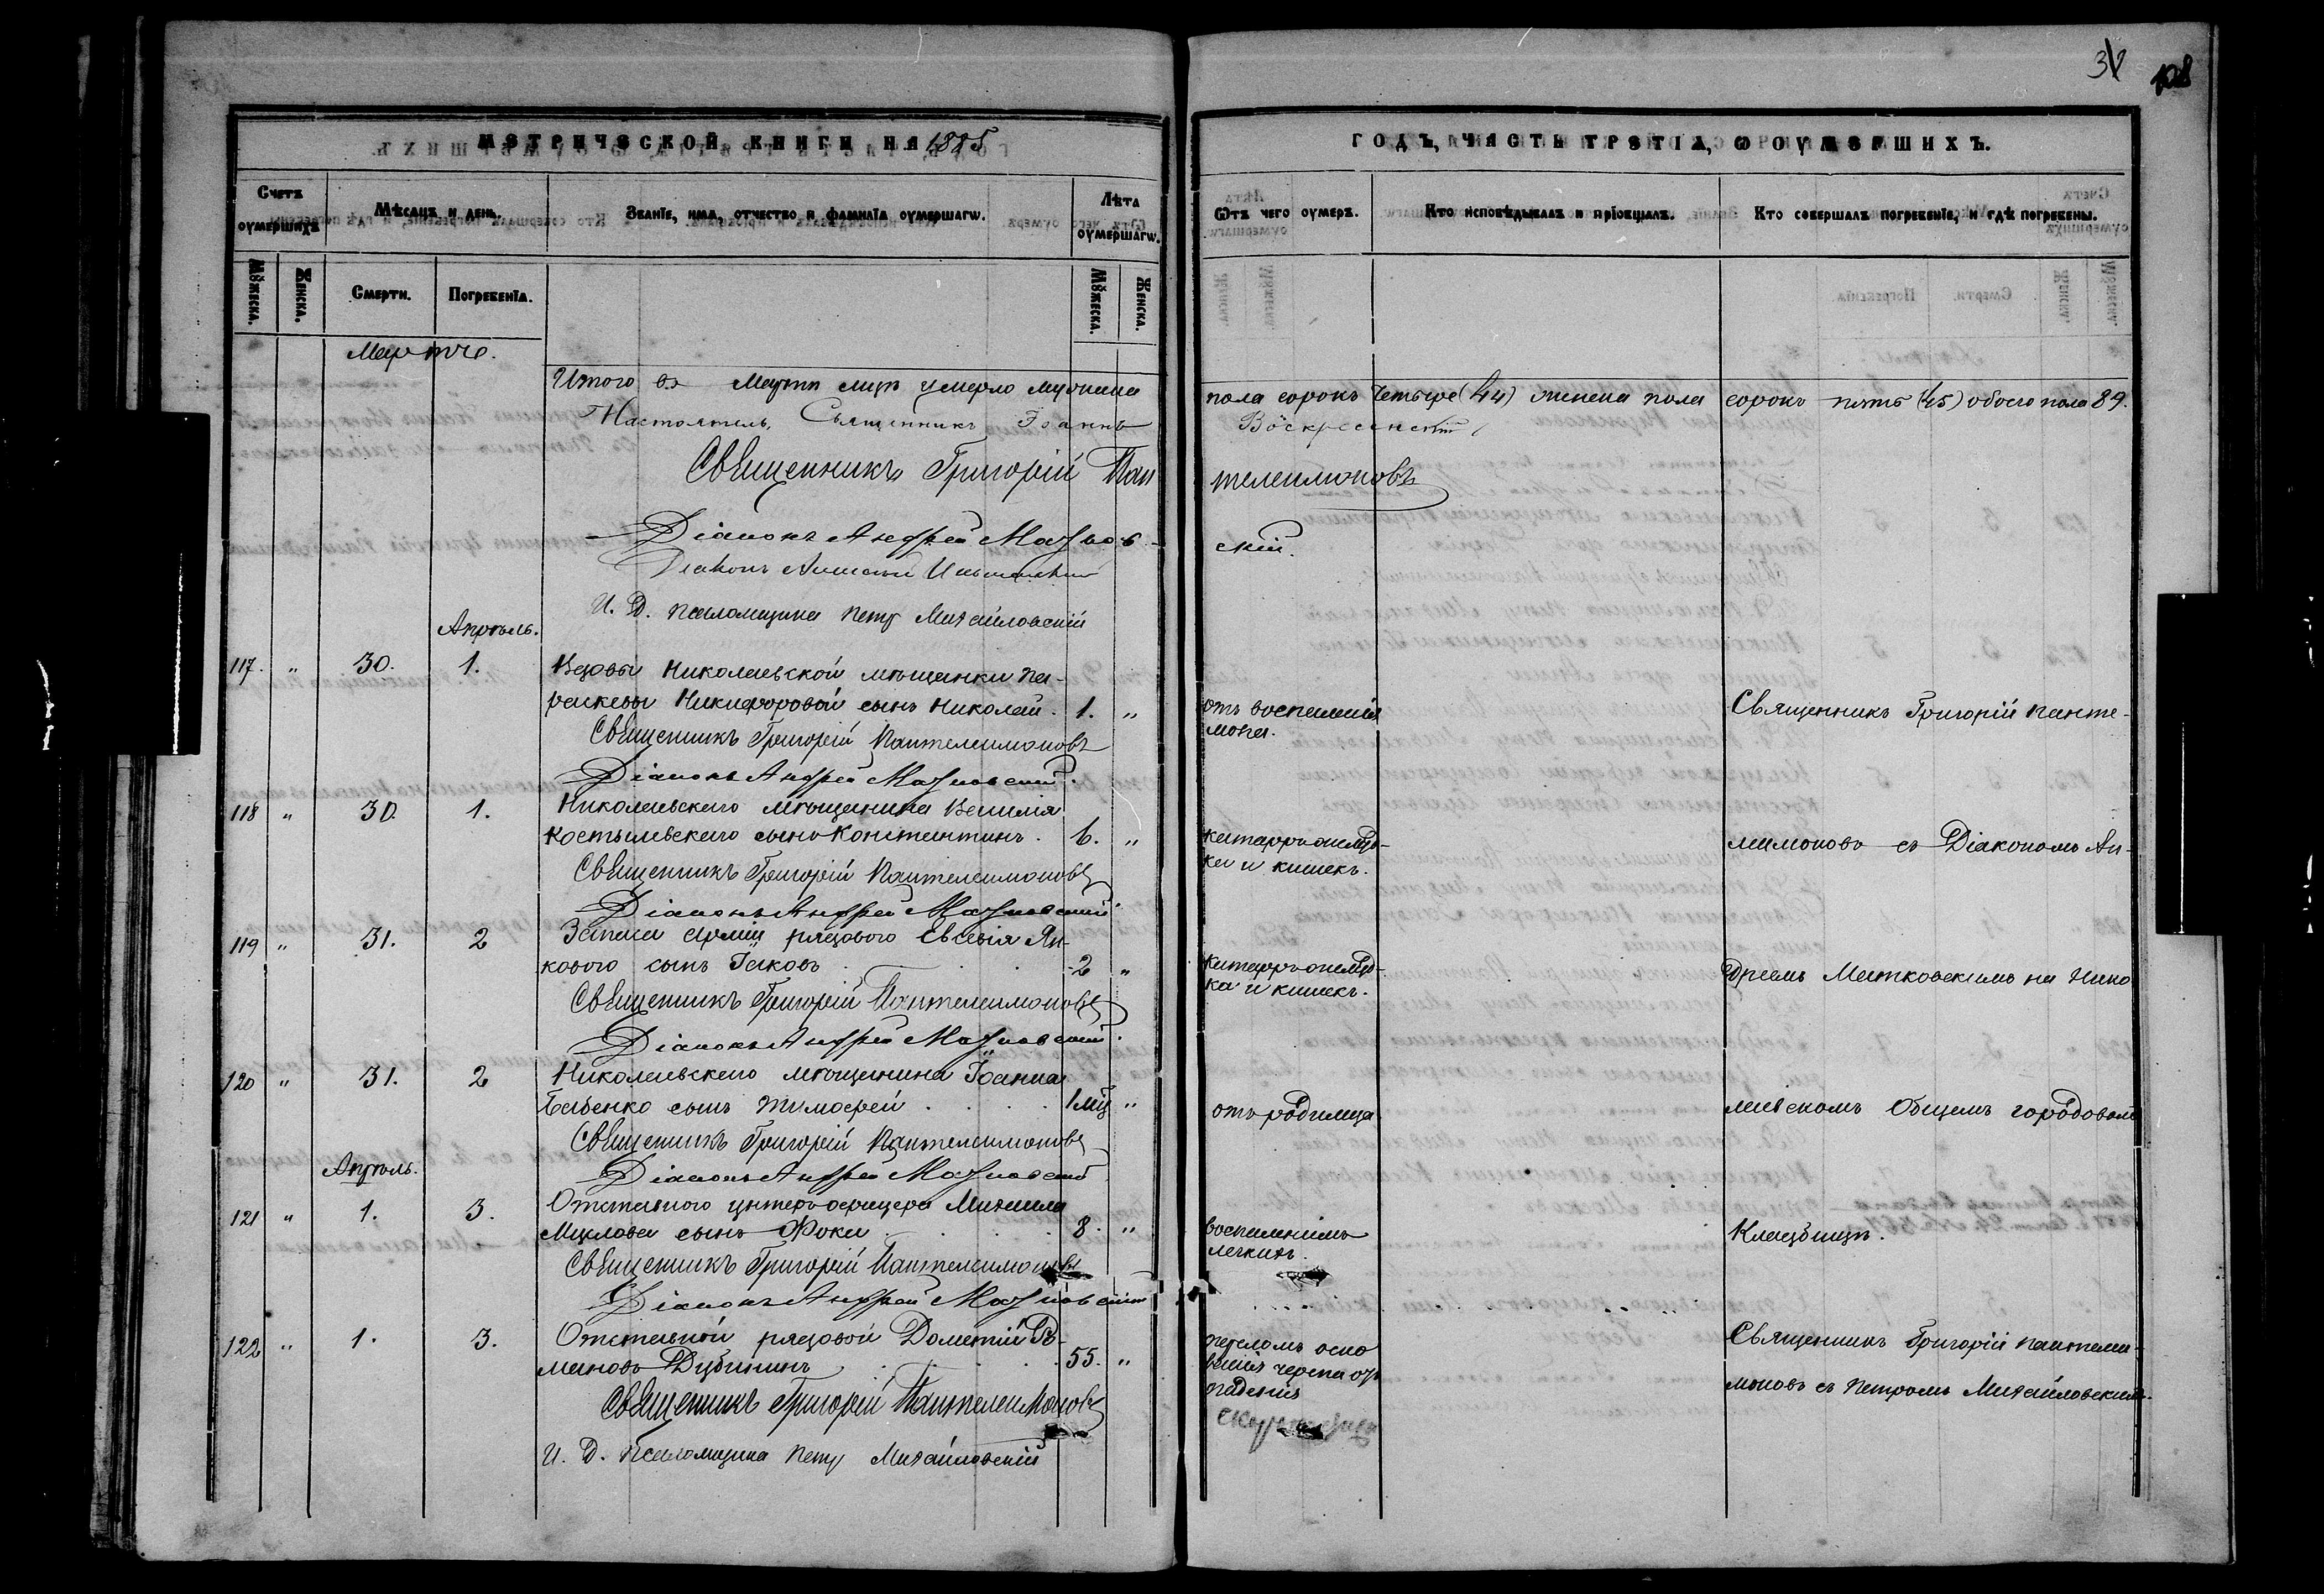 32 108
МЕТРИЧЕСКОЙ КНИГИ НА 1885 ГОДЪ, ЧАСТЬ ТРЕТІЯ, Ѡ ОУМЕРШИХЪ.
Счетъ оумершихъ
Мѣсяцъ и день.
Званіе, имя, отчество и фамилія оумершагѡ.
Лѣта оумершагѡ.
Ѿтъ чего оумеръ.
Кто исповѣдывалъ и пріобщалъ.
Кто совершалъ погребеніе, и гдѣ погребены.
Мꙋжеска. Женска. Смерти. Погребенїѧ. Мꙋжеска. Женска.
Мартъ.
Итого въ Мартѣ мцѣ умерло мужеска пола сорокъ четыре (44) женска пола сорокъ пять (45) обоего пола 89.
Настоятель, Священникъ Іоаннъ Воскресенскій
Священникъ Григорій Пантелеимоновъ
Діаконъ Андрей Матковскій.
Діаконъ
И. Д. псаломщика Петръ Михайловскій
Апрѣль.
117. " 30. 1. Вдовы Николаевской мѣщанки Па-
раскевы Никифоровой сынъ Николай. 1. " отъ воспаленія Священникъ Григорій Панте-
мозга.
Священникъ Григорій Пантелеимоновъ
Діаконъ Андрей Матковскій.
118 " 30. 1. Николаевскаго мѣщанина Василія
Костылевскаго сынъ Константинъ. 6. " катарръ желуд- лимоновъ съ Діакономъ Ан-
ка и кишекъ.
Священникъ Григорій Пантелеимоновъ
Діаконъ Андрей Матковскій
119 " 31. 2 Запаса арміи рядового Евсевія Ян-
кового сынъ Іаковъ 2 " катарръ желуд- дреемъ Матковскимъ на Нико
ка и кишекъ.
Священникъ Григорій Пантелеимоновъ
Діаконъ Андрей Матковскій.
120 " 31. 2 Николаевскаго мѣщанина Іоанна
Бабенко сынъ Тимофей 1 мц " отъ родимца лаевскомъ Общемъ городовомъ
Священникъ Григорій Пантелеимоновъ
Апрѣль.
Діаконъ Андрей Матковскій
121 " 1. 3. Отставного унтеръ-офицера Михаила
сынъ Фока 8. " воспаленіемъ Кладбищѣ.
легкихъ.
Священникъ Григорій Пантелеимоновъ
Діаконъ Андрей Матковскій
122 " 1. 3. Отставной рядовой Дометій Ро-
мановъ Дубининъ 55. " переломъ осно Священникъ Григорій Пантели-
ванія черепа отъ
паденія моновъ съ Петромъ Михайловскимъ.
Священникъ Григорій Пантелеимоновъ
И. Д. Псаломщика Петръ Михайловскій